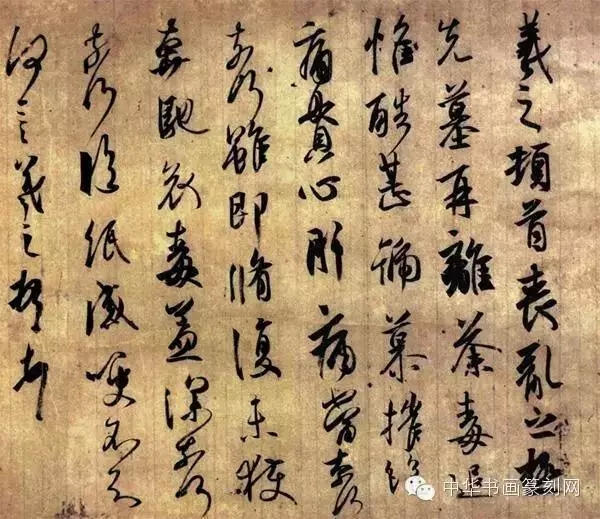 羲之頓首喪亂之極
先墓再離荼毒追
惟酷甚號慕摧絕
痛貫心肝痛當奈何
奈何雖即脩復未獲
奔馳哀毒益深奈何
奈何臨紙感哽不知
何言羲之頓首頓首
中华书画篆刻网